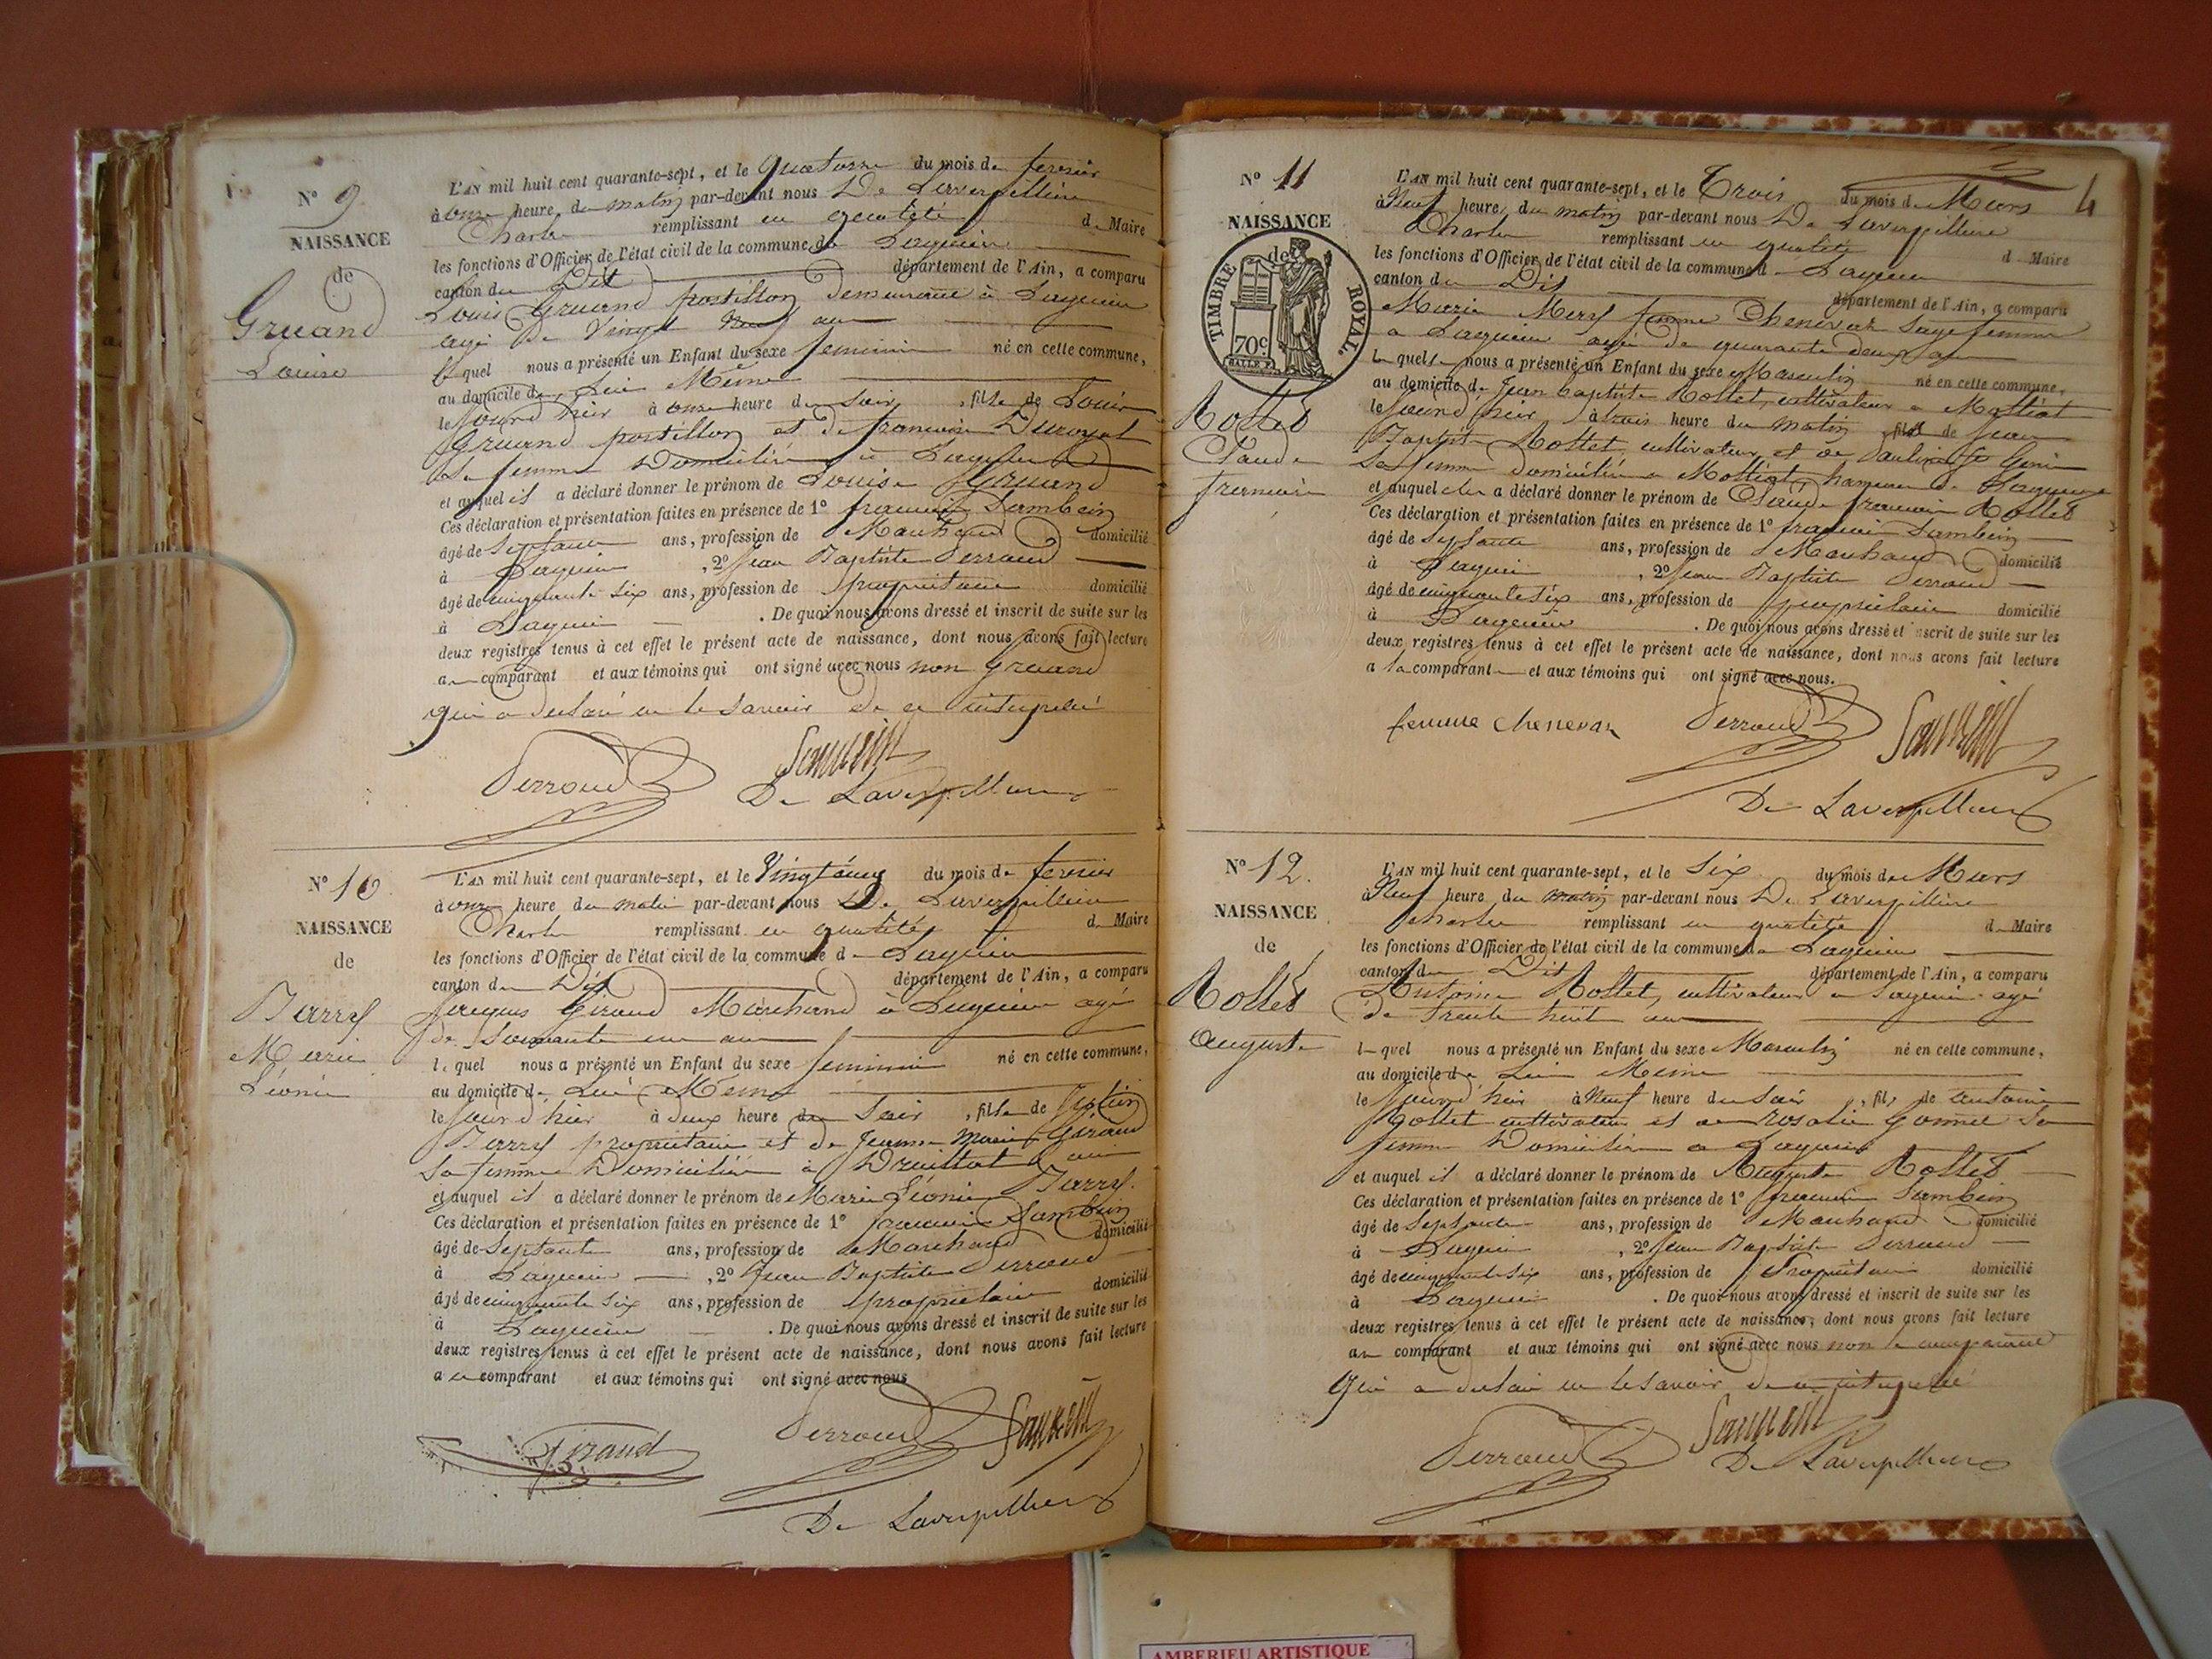 N° 9
NAISSANCE
de
Gruand
Louise
L'AN mil huit cent quarante-sept, et le quatorze du mois de fevrier
à onze heure du matin par-devant nous De Laverpilliere
Charles remplissant en qualité de Maire
les fonctions d'Officier de l'état civil de la commune de Lagnieu
canton du Dit département de l'Ain, a comparu
Louis Gruand postillon demeurant à Lagnieu
agé de Vingt neuf ans
lequel nous a présenté un Enfant du sexe feminin né en cette commune,
au domicile de Lui Même
le jourd'hier à onze heure du soir, fille de Louis
Gruand postillon et de francoise Duroyat
sa femme Domiciliés à Lagnieu
et auquel il a déclaré donner le prénom de Louise Gruand
Ces déclaration et présentation faites en présence de 1° francois Sambein
âgé de Septante ans, profession de Marchand domicilié
à Lagnieu, 2° Jean Baptiste Perroud
âgé de cinquante six ans, profession de propriétaire domicilié
à Lagnieu. De quoi nous avons dressé et inscrit de suite sur les
deux registres tenus à cet effet le présent acte de naissance, dont nous avons fait lecture
au comparant et aux témoins qui ont signé avec nous non Gruand
qui a declaré ne le savoir de ce interpellé
Perroud Sambein
De Laverpilliere
N° 10
NAISSANCE
de
Barry
Marie
Léonie
L'AN mil huit cent quarante-sept, et le Vingt cinq du mois de fevrier
à onze heure du matin par-devant nous De Laverpilliere
Charles remplissant en qualité de Maire
les fonctions d'Officier de l'état civil de la commune de Lagnieu
canton du Dit département de l'Ain, a comparu
Jacques Giraud Marchand à Lagnieu agé
de Soixante un ans
lequel nous a présenté un Enfant du sexe feminin né en cette commune,
au domicile de Lui Même
le jourd'hier à deux heure du Soir, fille de
Barry propriétaire et de Jeanne Marie Giraud
Sa femme Domiciliés à Druillat
et auquel il a déclaré donner le prénom de Marie Léonie Barry.
Ces déclaration et présentation faites en présence de 1° francois Sambein
âgé de Septante ans, profession de Marchand domicilié
à Lagnieu, 2° Jean Baptiste Perroud
âgé de cinquante six ans, profession de propriétaire domicilié
à Lagnieu. De quoi nous avons dressé et inscrit de suite sur les
deux registres tenus à cet effet le présent acte de naissance, dont nous avons fait lecture
a ce comparant et aux témoins qui ont signé avec nous
Giraud Perroud Sambein
De Laverpilliere
4
N° 11
NAISSANCE
de
TIMBRE ROYAL.
70c
Rollet
Claude
francois
L'AN mil huit cent quarante-sept, et le Trois du mois de Mars
à Neuf heure du matin par-devant nous De Laverpilliere
Charles remplissant en qualité de Maire
les fonctions d'Officier de l'état civil de la commune de Lagnieu
canton du Dit département de l'Ain, a comparu
Marie Mery femme Chenevar Sage femme
a Lagnieu agée de quarante deux ans
laquelle nous a présenté un Enfant du sexe Masculin né en cette commune,
au domicile de Jean baptiste Rollet, cultivateur a Mottiat
le jourd'hier à trois heure du matin, fils de Jean
Baptiste Rollet cultivateur et de
Sa femme domiciliés a Mottiat, hameau de Lagnieu
et auquel elle a déclaré donner le prénom de Claude francois Rollet
Ces déclaration et présentation faites en présence de 1° francois Sambein
âgé de Septante ans, profession de Marchand domicilié
à Lagnieu, 2° Jean Baptiste Perroud
âgé de cinquante six ans, profession de propriétaire domicilié
à Lagnieu. De quoi nous avons dressé et inscrit de suite sur les
deux registres tenus à cet effet le présent acte de naissance, dont nous avons fait lecture
a la comparante et aux témoins qui ont signé avec nous.
femme chenevar Perroud Sambein
De Laverpilliere
N° 12.
NAISSANCE
de
Rollet
auguste
L'AN mil huit cent quarante-sept, et le Six du mois de Mars
à Neuf heure du matin par-devant nous De Laverpilliere
charles remplissant en qualité de Maire
les fonctions d'Officier de l'état civil de la commune de Lagnieu
canton du Dit département de l'Ain, a comparu
Antoine Rollet, cultivateur a Lagnieu agé
de Trente huit ans
lequel nous a présenté un Enfant du sexe Masculin né en cette commune,
au domicile de Lui Même
le jourd'hier à Neuf heure du Soir, fils de antoine
Rollet cultivateur et de rosalie Sa
femme Domiciliés a Lagnieu
et auquel il a déclaré donner le prénom de Auguste Rollet
Ces déclaration et présentation faites en présence de 1° francois Sambein
âgé de Septante ans, profession de Marchand domicilié
à Lagnieu, 2° Jean Baptiste Perroud
âgé de cinquante six ans, profession de Propriétaire domicilié
à Lagnieu. De quoi nous avons dressé et inscrit de suite sur les
deux registres tenus à cet effet le présent acte de naissance, dont nous avons fait lecture
au comparant et aux témoins qui ont signé avec nous non le comparant
qui a declaré ne le savoir de ce interpellé
Perroud Sambein
De Laverpilliere
AMBERIEU ARTISTIQUE